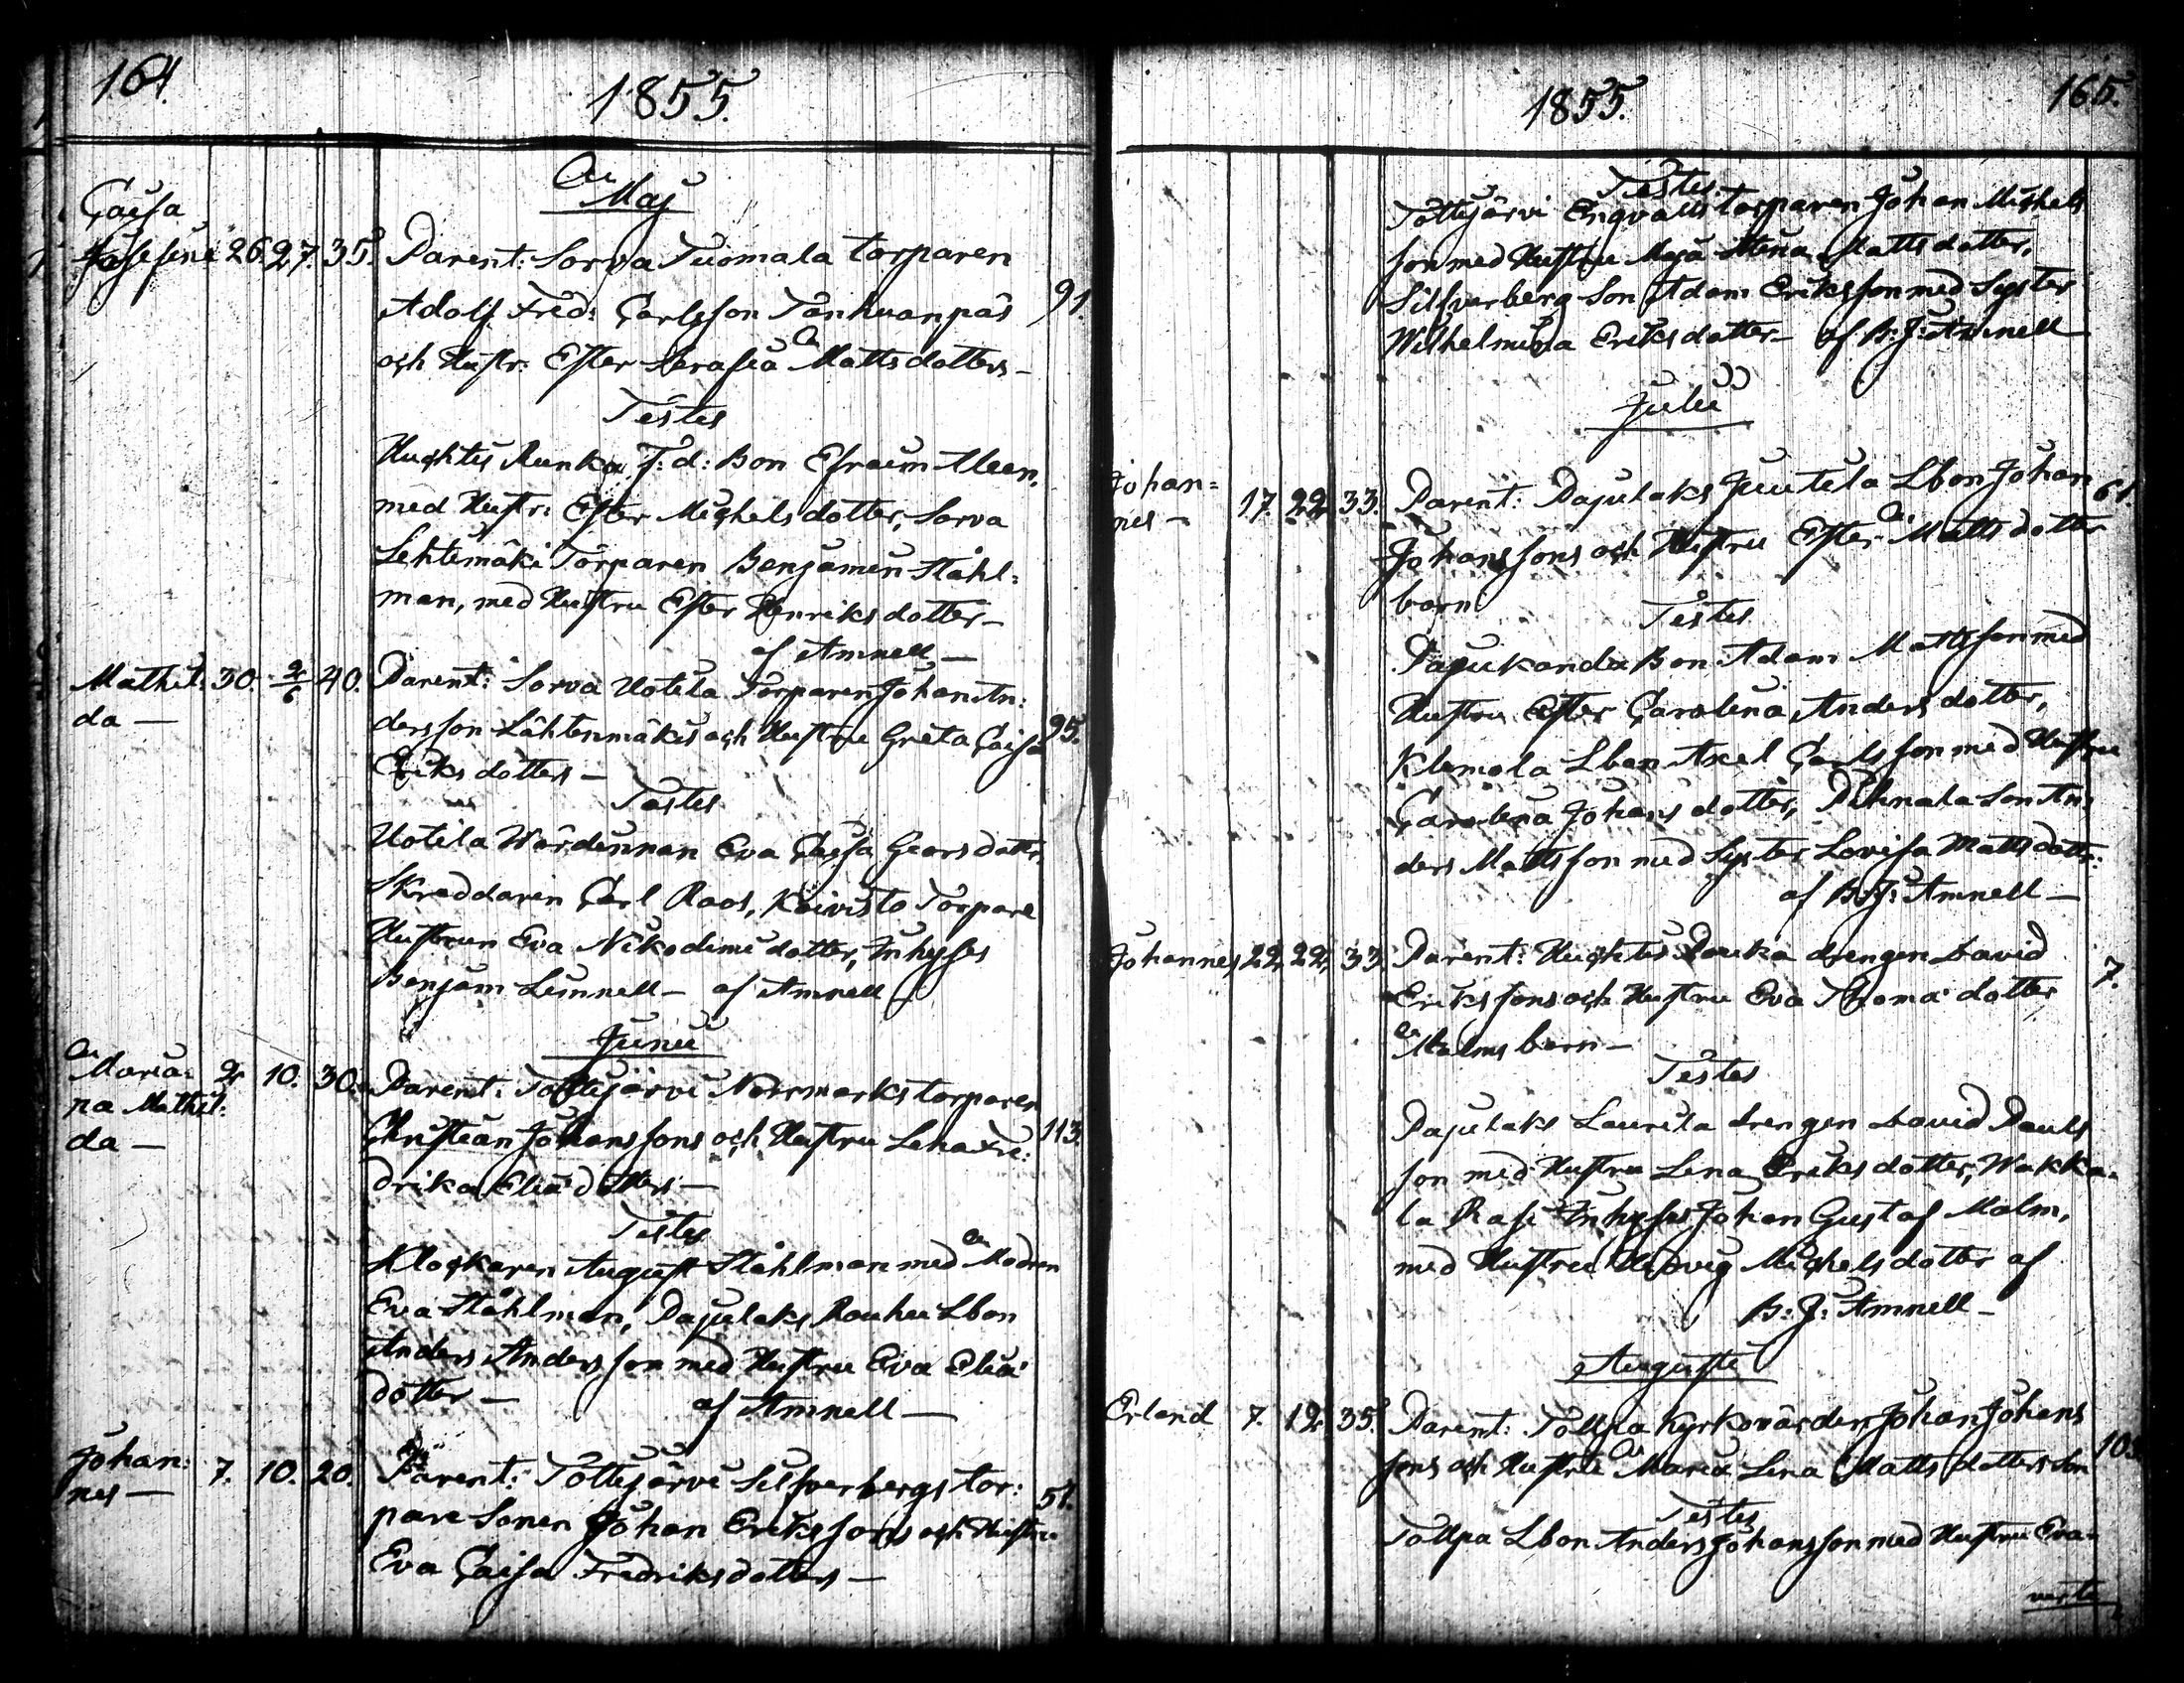 164.
1855.
Maj
Cajsa
Josefina 26. 27. 35. Parent: Sorva Tuomala torparen
Adolf Fred: Carlsson Tanhuanpäs 91.
och Hustr: Ester Serafia Mattsdotters –
Testes
Huchtis Runka f: d: Bon Efraim
med Hustr: Ester Michelsdotter, Sorva
Lehtimäki Torparen Benjamin Ståhl=
man, med Hustru Ester Henriksdotter –
af Amnell –
Mathil: 30. 2/6 40. Parent: Sorva Uotila Torparen Johan An:
da – dersson Lähtenmäkis och Hustru Greta Cajsa 95.
Eriksdotters –
Testes
Uotila Wärdinnan Eva Cajsa Georsdotter,
Skreddaren Carl Roos, Koivisto Torpare
Hustrun Eva Nikodimidotter, Inhyses
Benjam Linnell – af Amnell
Junii
Maria= 2. 10. 30. Parent: Tottijärvi Norrmarks torparen
na Mathil:
da – Christian Johanssons och Hustru Lena Fre: 113.
drika Eliædotters –
Testes
Klockaren August Ståhlman med Modren
Eva Ståhlman, Pajulaks Rouhu Lbon
Anders Andersson med Hustru Eva Eliæ
dotter – af Amnell –
Johan: 7. 10. 20. Parent: Tottijärvi Silfverbergs tor:
nes – pare Sonen Johan Erikssons och Hustru 51.
Eva Cajsa Fredriksdotters –
1855.
165.
Testes.
Tottijärvi Engvalls torparen Johan Michels
son med Hustru Maja Stina Mattsdotter,
Silfverberg Son Adam Eriksson med Syster
Wilhelmina Eriksdotter – af B: J: Amnell
Julii
Johan= 17. 22. 33. Parent: Pajulaks Juutila Lbon Johan 61.
nes – Johanssons och Hustru Ester Mattsdotter
barn
Testes
Pajukanda Bon Adam Mattsson med
Hustru Ester Carolina Andersdotter,
Klemola Lbon Axel Carlsson med Hustru
Carolina Johansdotter, Pihnala Son An:
ders Mattsson med Syster Lovisa Mattsdottr:
af B: J: Amnell –
Johannes 22. 22. 33. Parent: Huchtis drengen David 7.
Erikssons och Hustru Eva Thomædotter
Malms barn –
Testes
Pajulaks Laurila drengen David Pauls
son med Hustru Lena Eriksdotter, Wakka=
la Rasi Inhyses Johan Gustaf Malm,
med Hustru Hedvig Michelsdotter af
B: J: Amnell –
Augusti
Erland 7. 12. 35. Parent: Tollpa Kyrkovärden Johan Johans
sons och Hustru Maria Lena Mattsdotters Son 103.
Testes
Tollpa Lbon Anders Johansson med Hustru Eva
verte